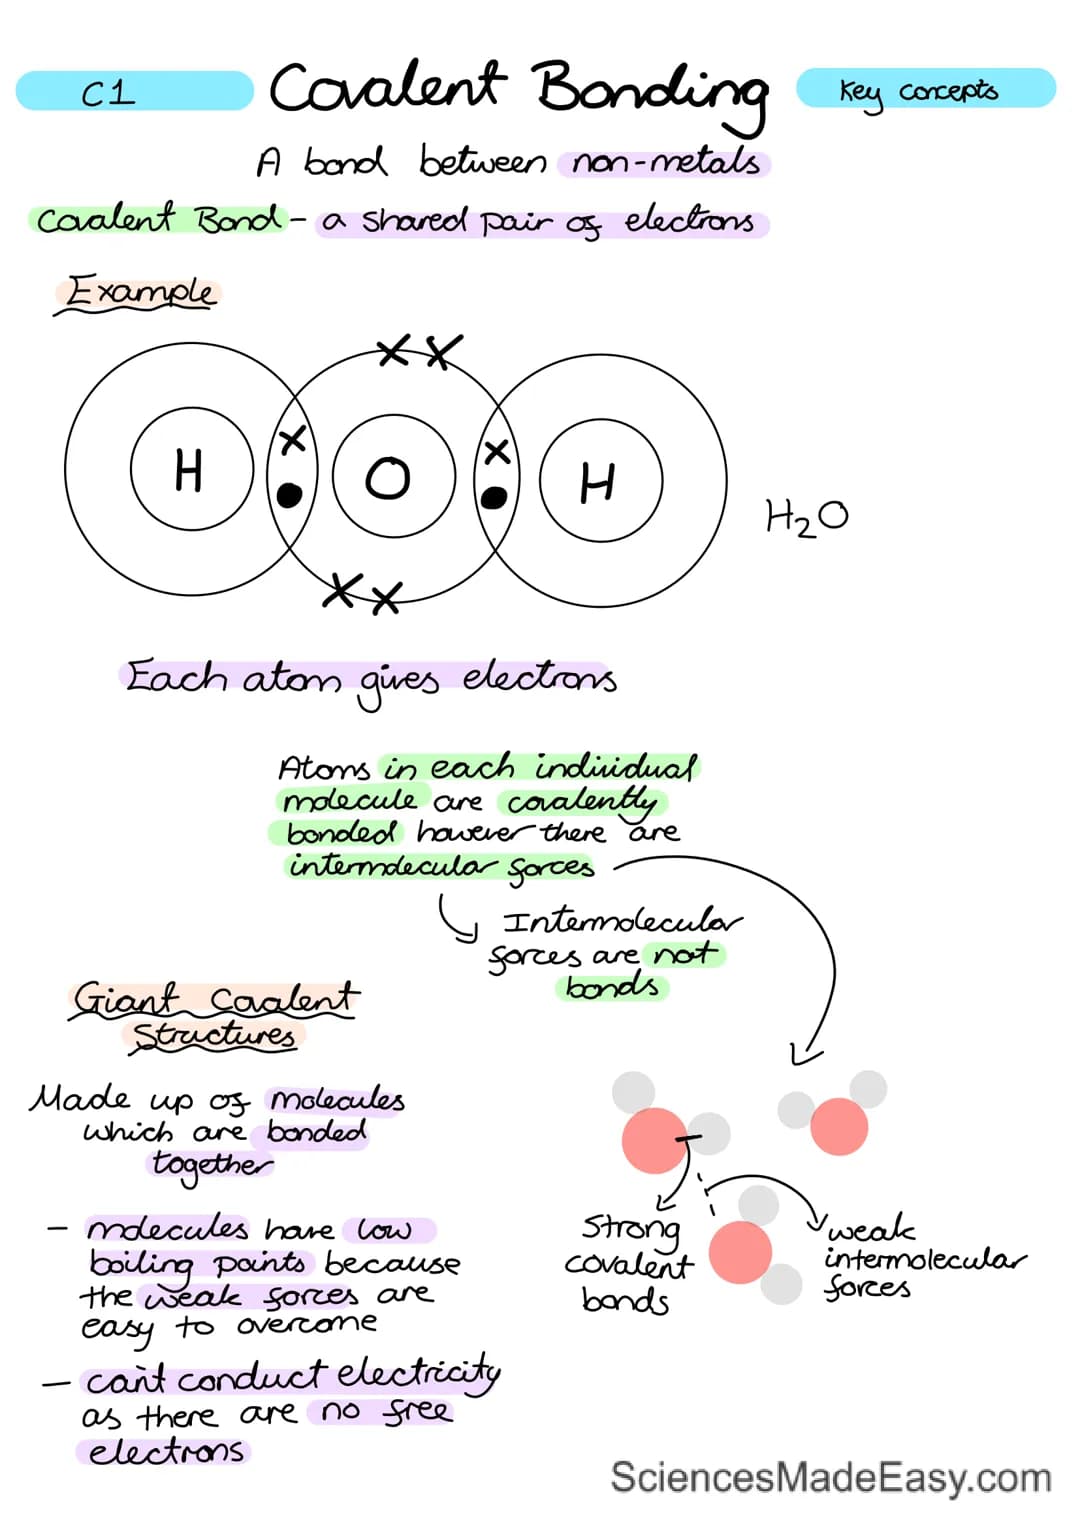 C1
Covalent Bonding
Key concepts
A bond between non-metals
Covalent Bond - a shared pair of electrons
Example
H
O
H
H₂O
Each atom gives electrons
Atoms in each individual
molecule are covalently
bonded however there are
intermolecular forces
Intermolecular
forces are not
bonds
Giant Covalent
Structures
Made up of molecules
which are bonded
together
- molecules have low
boiling points because
the weak forces are
easy to overcome
- can't conduct electricity
as there are no free
electrons
Strong
covalent
bonds
weak
intermolecular
forces
SciencesMadeEasy.com